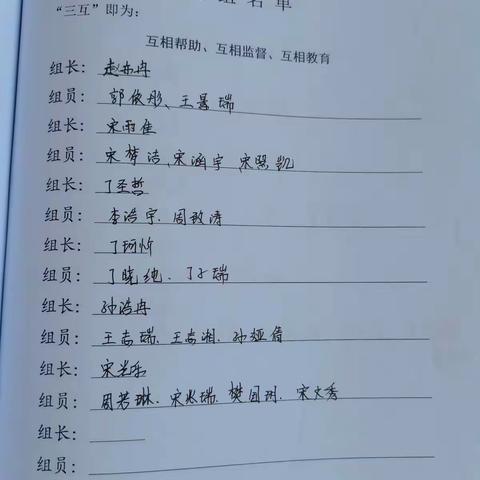 组名单
“三互”即为：
互相帮助、互相监督、互相教育
组长：赵冉冉
组员：郭依彤、王景瑞
组长：宋雨佳
组员：宋梦洁、宋涵宇、宋照凯
组长：丁圣哲
组员：李浩宇、周致涛
组长：丁珂忻
组员：丁晓纯、丁子瑞
组长：孙浩冉
组员：王志瑞、王志湘、孙
组长：宋光乐
组员：周若琳、宋兆瑞、樊国玥、宋文秀
组长：
组员：